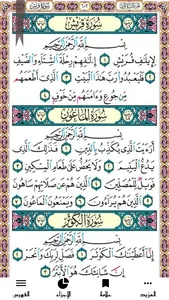 سُورَةُ قُرَيْشٍ
بِسْمِ ٱللَّهِ ٱلرَّحْمَٰنِ ٱلرَّحِيمِ
لِإِيلَٰفِ قُرَيْشٍ ١ إِۦلَٰفِهِمْ رِحْلَةَ ٱلشِّتَآءِ وَٱلصَّيْفِ
٢ فَلْيَعْبُدُوا۟ رَبَّ هَٰذَا ٱلْبَيْتِ ٣ ٱلَّذِىٓ أَطْعَمَهُم
مِّن جُوعٍ وَءَامَنَهُم مِّنْ خَوْفٍۭ ٤
سُورَةُ ٱلْمَاعُونِ
بِسْمِ ٱللَّهِ ٱلرَّحْمَٰنِ ٱلرَّحِيمِ
أَرَءَيْتَ ٱلَّذِى يُكَذِّبُ بِٱلدِّينِ ١ فَذَٰلِكَ ٱلَّذِى
يَدُعُّ ٱلْيَتِيمَ ٢ وَلَا يَحُضُّ عَلَىٰ طَعَامِ ٱلْمِسْكِينِ ٣
فَوَيْلٌ لِّلْمُصَلِّينَ ٤ ٱلَّذِينَ هُمْ عَن صَلَاتِهِمْ سَاهُونَ
٥ ٱلَّذِينَ هُمْ يُرَآءُونَ ٦ وَيَمْنَعُونَ ٱلْمَاعُونَ ٧
سُورَةُ ٱلْكَوْثَرِ
بِسْمِ ٱللَّهِ ٱلرَّحْمَٰنِ ٱلرَّحِيمِ
إِنَّآ أَعْطَيْنَٰكَ ٱلْكَوْثَرَ ١ فَصَلِّ لِرَبِّكَ وَٱنْحَرْ ٢
إِنَّ شَانِئَكَ هُوَ ٱلْأَبْتَرُ ٣
المزيد علامة الأجزاء الفهرس